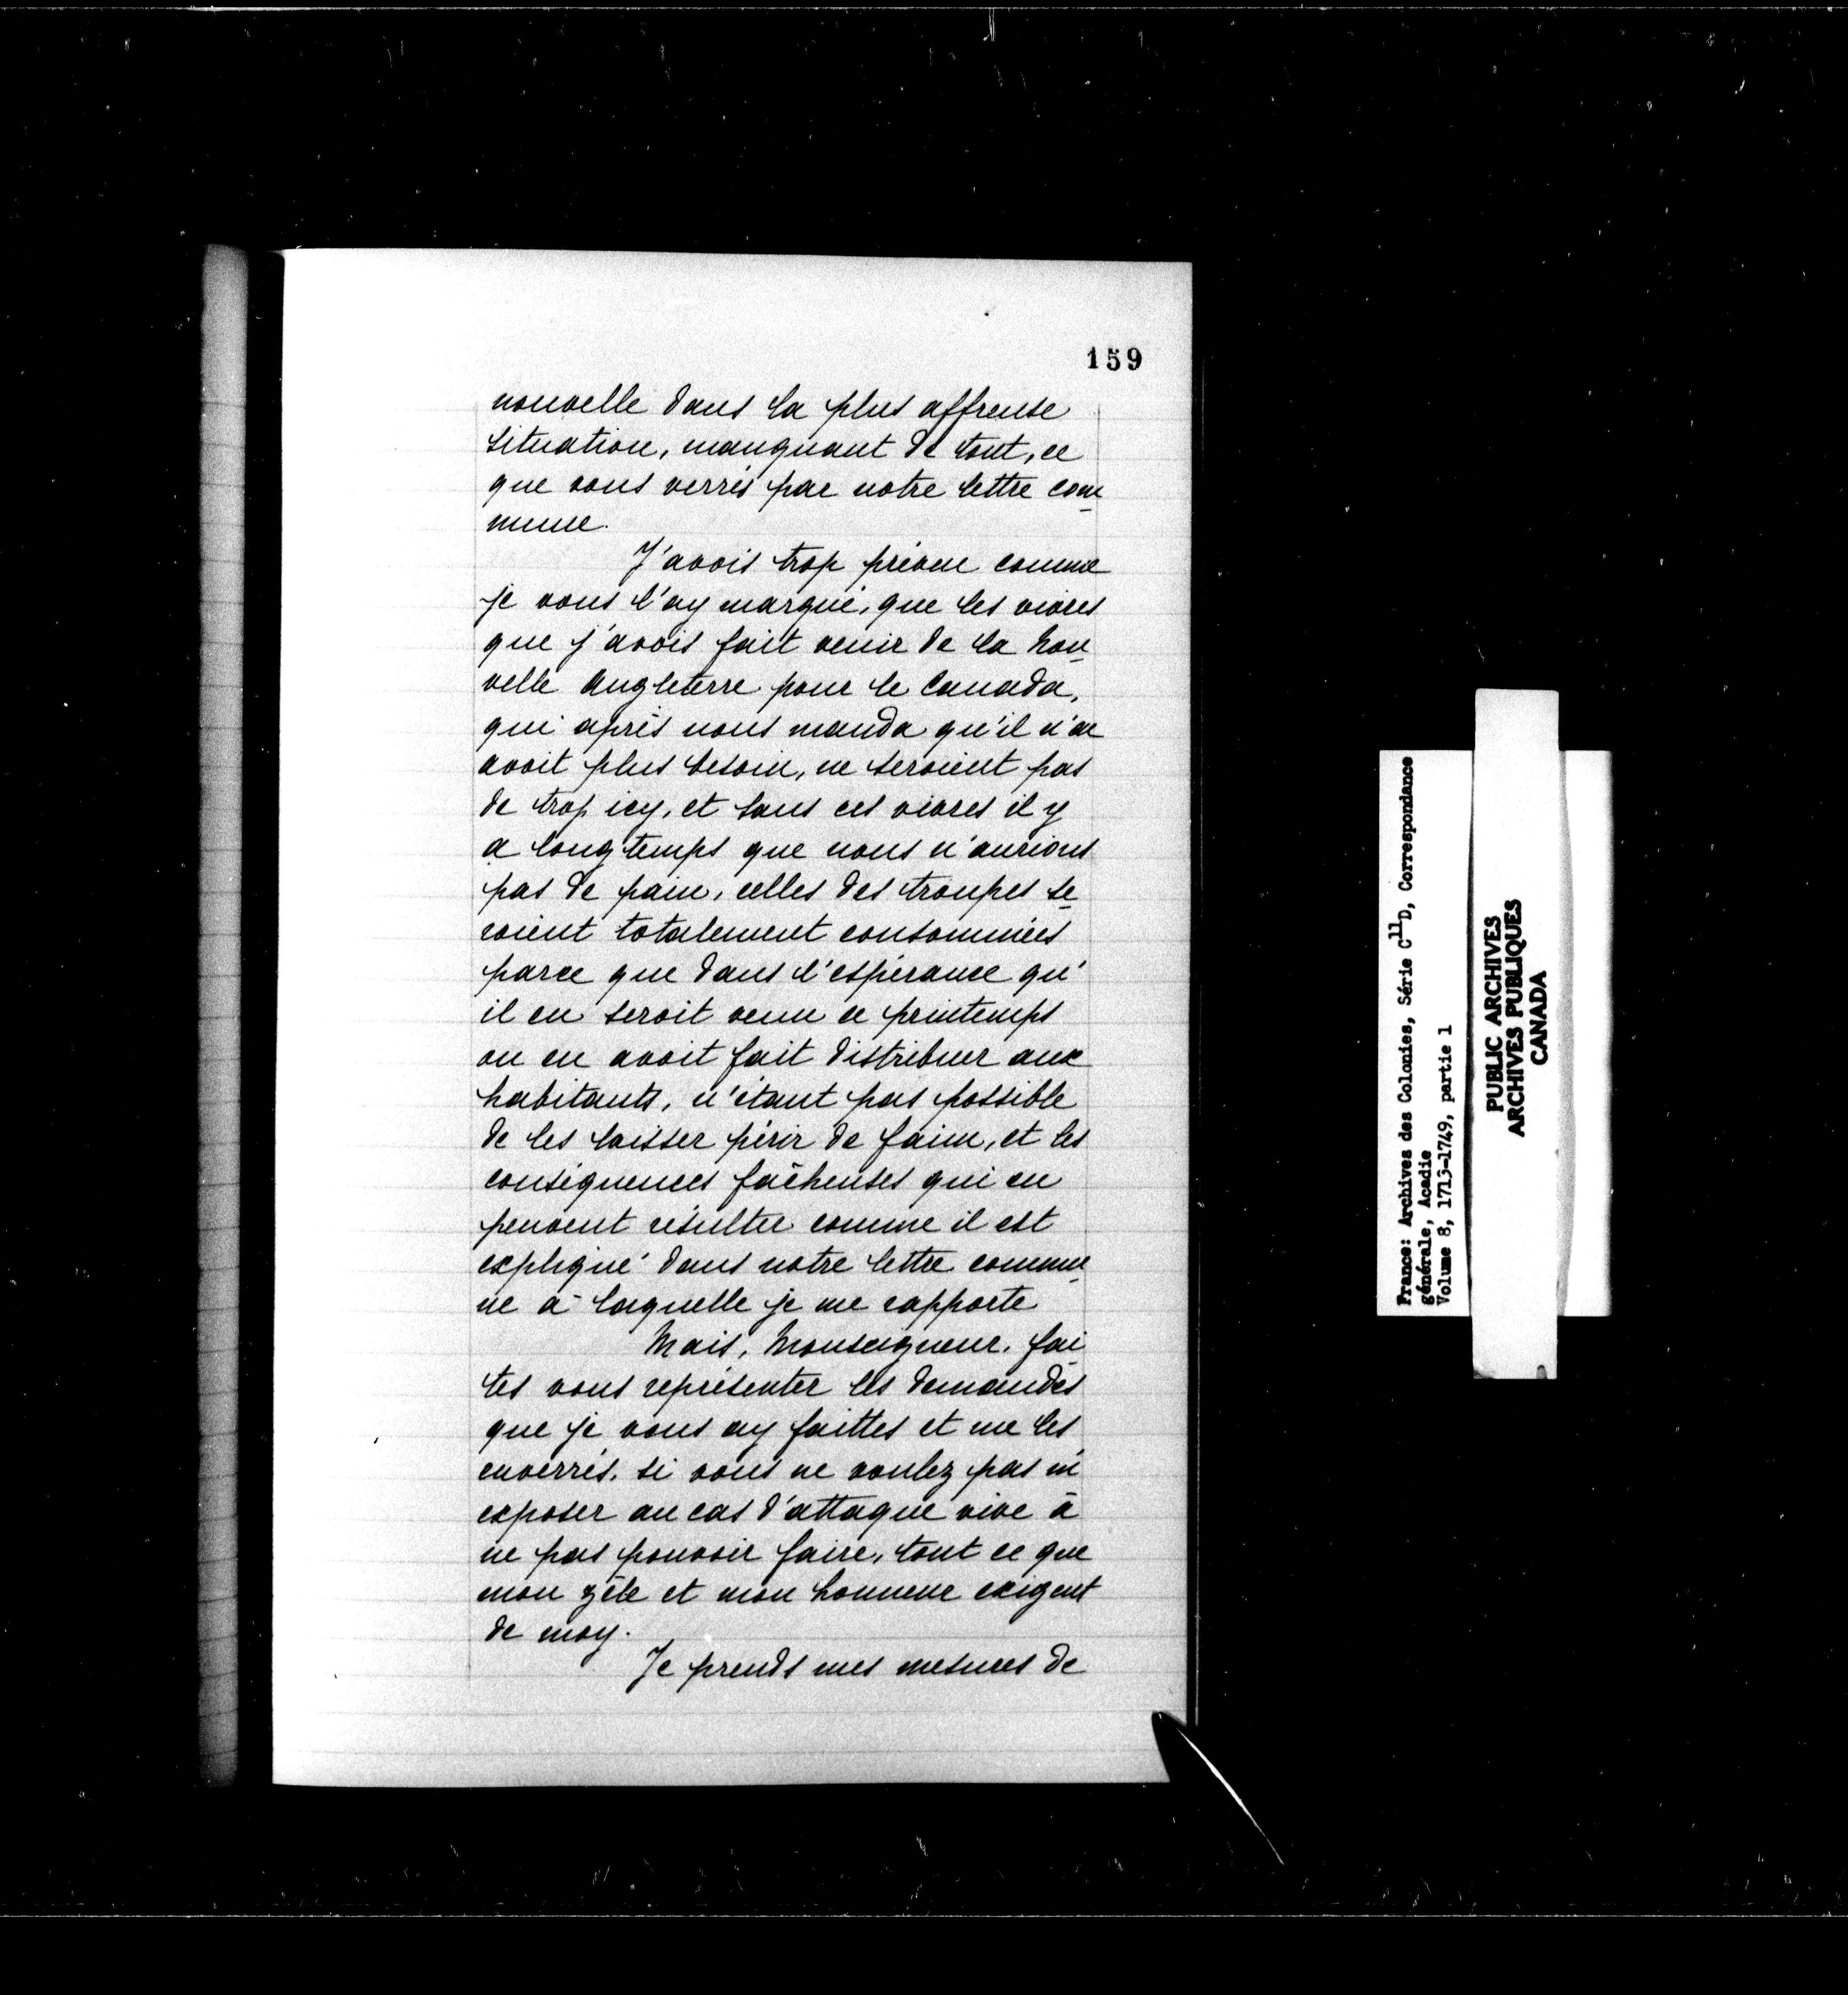 159
nouvelle dans la plus affreuse
situation, manquant de tout, ce
que vous verrés par notre lettre com
mune.
J'avois trop prévue comme
je vous l'ay marqué, que les vivres
que j'avois fait venir de la Nou
velle Angleterre pour le Canada,
qui après nous manda qu'il n'en
avoit plus besoin, ne seroient pas
de trop icy, et sans ces vivres il y
a longtemps que nous n'aurions
pas de pain, celles des troupes se
roient totalement consommées
parce que dans l'espérance qu'
il en seroit venu ce printemps
on en avoit fait distribuer aux
habitants, n'étant pas possible
de les laisser périr de faim, et les
conséquences fâcheuses qui en
peuvent résulter comme il est
expliqué dans notre lettre commu
ne à laquelle je me rapporte
Mais, Monseigneur, fai
tes vous représenter les demandes
que je vous ay faittes et me les
enverrés, si vous ne voulez pas m'
exposer au cas d'attaque vive à
ne pas pouvoir faire, tout ce que
mon zèle et mon honneur exigent
de moy.
Je prends mes mesures de
France: Archives des Colonies, Série C11D, Correspondance
générale, Acadie
Volume 8, 1713-1749, partie 1
PUBLIC ARCHIVES
ARCHIVES PUBLIQUES
CANADA